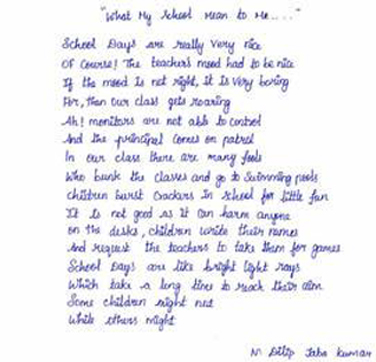 "What My School Mean to Me....."
School Days are really very nice
Of Course! The teachers mood had to be nice
If the mood is not right, it is very boring
For, then our class gets roaring
Ah! monitors are not able to control
And the principal comes on patrol
In our class there are many fools
Who bunk the classes and go to Swimming pools
Children burst Crackers in School for little fun
It is not good as it can harm anyone
on the desks, children write their names
And request the teachers to take them for games
School Days are like bright light rays
Which take a long time to reach their aim
Some children might not
While others might
N Dilip Kumar